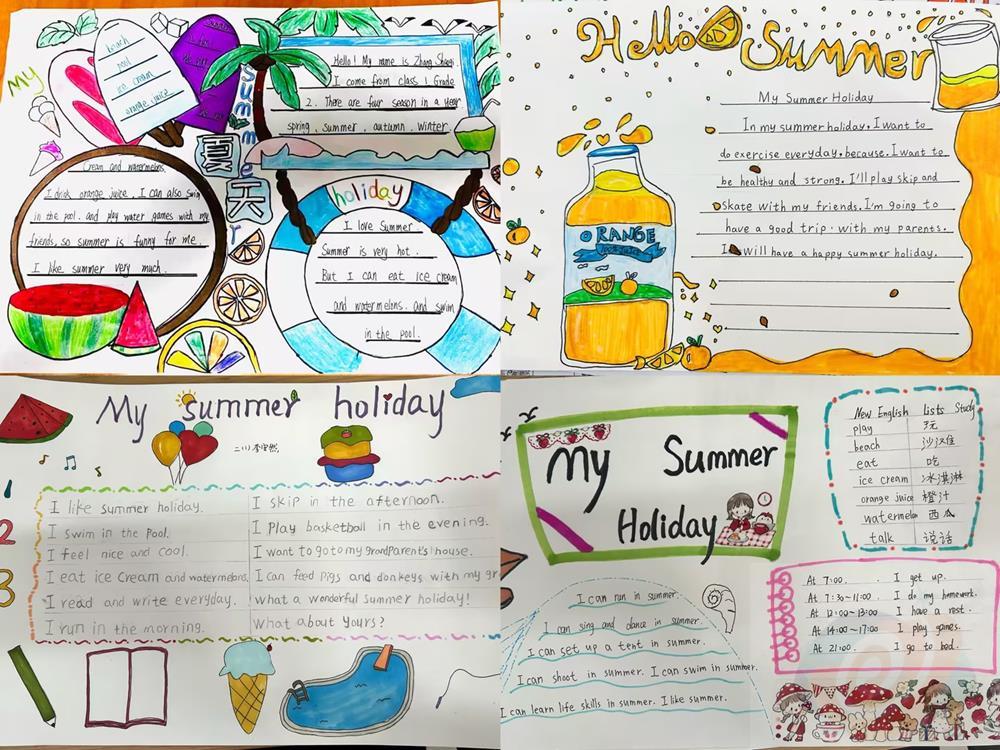 My
beach
pool
ice cream
orange juice
summer
夏
天
Hello! My name is Zhang
I come from class 1 Grade
2. There are four season in a year
spring, summer, autumn, winter
Cream and watermelons.
I drink orange juice. I can also swim
in the pool. and play water games with my
friends, so summer is funny for me
I like summer very much.
holiday
I love Summer
Summer is very hot.
But I can eat ice cream
and watermelons. and swim
in the pool.
Hello Summer
My Summer Holiday
In my summer holiday. I want to
do exercise everyday. because. I want to
be healthy and strong. I'll play skip and
skate with my friends. I'm going to
have a good trip. with my parents.
I will have a happy summer holiday.
ORANGE
My summer holiday
二(1)
I like summer holiday.
I swim in the Pool.
I feel nice and cool.
I eat ice Cream and watermelons.
I read and write everyday.
I run in the morning.
I skip in the afternoon.
I Play basketball in the evening.
I want to go to my grandparent's house.
I can feed Pigs and donkeys with my gr
what a wonderful summer holiday!
What about Yours?
2
3
My Summer
Holiday
New English lists Study
play 玩
beach 沙滩
eat 吃
ice cream 冰淇淋
orange juice 橙汁
watermelon 西瓜
talk 说话
At 7:00. I get up.
At 7:30~11:00. I do my homework.
At 12:00~13:00 I have a rest.
At 14:00~17:00 I play games.
At 21:00. I go to bed.
I can run in summer.
I can sing and dance in summer.
I can set up a tent in summer.
I can shoot in summer. I can swim in summer.
I can learn life skills in summer. I like summer.